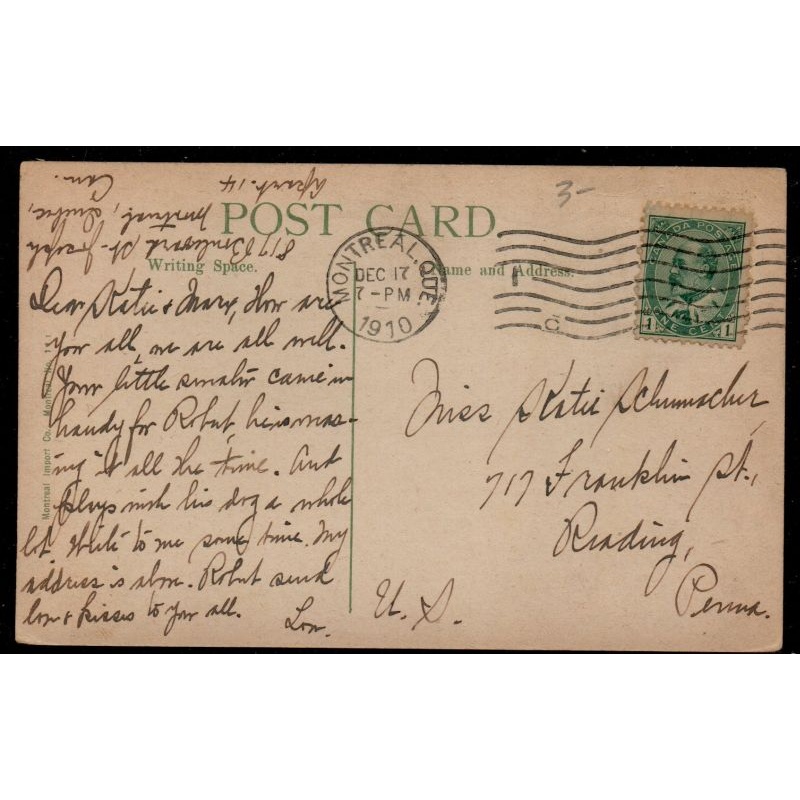 3-
Apart. 14
817 Boulevard St. Joseph
Montreal, Quebec,
Can.
POST CARD.
Writing Space.
Name and Address.
MONTREAL, QUE.
DEC 17
7-PM
1910
C
CANADA POSTAGE
1 ONE CENT 1
Dear Katie & Mary, How are
you all, we are all well.
Your little sweater came in
handy for Robert, he is
ing it all the time. And
plays with his dog a whole
lot. Write to me some time. My
address is above. Robert send
love & kisses to you all.
Lou.
Miss Katie Schumacher,
717 Franklin St.,
Reading,
Penna.
U. S.
Montreal Import Co., Montreal